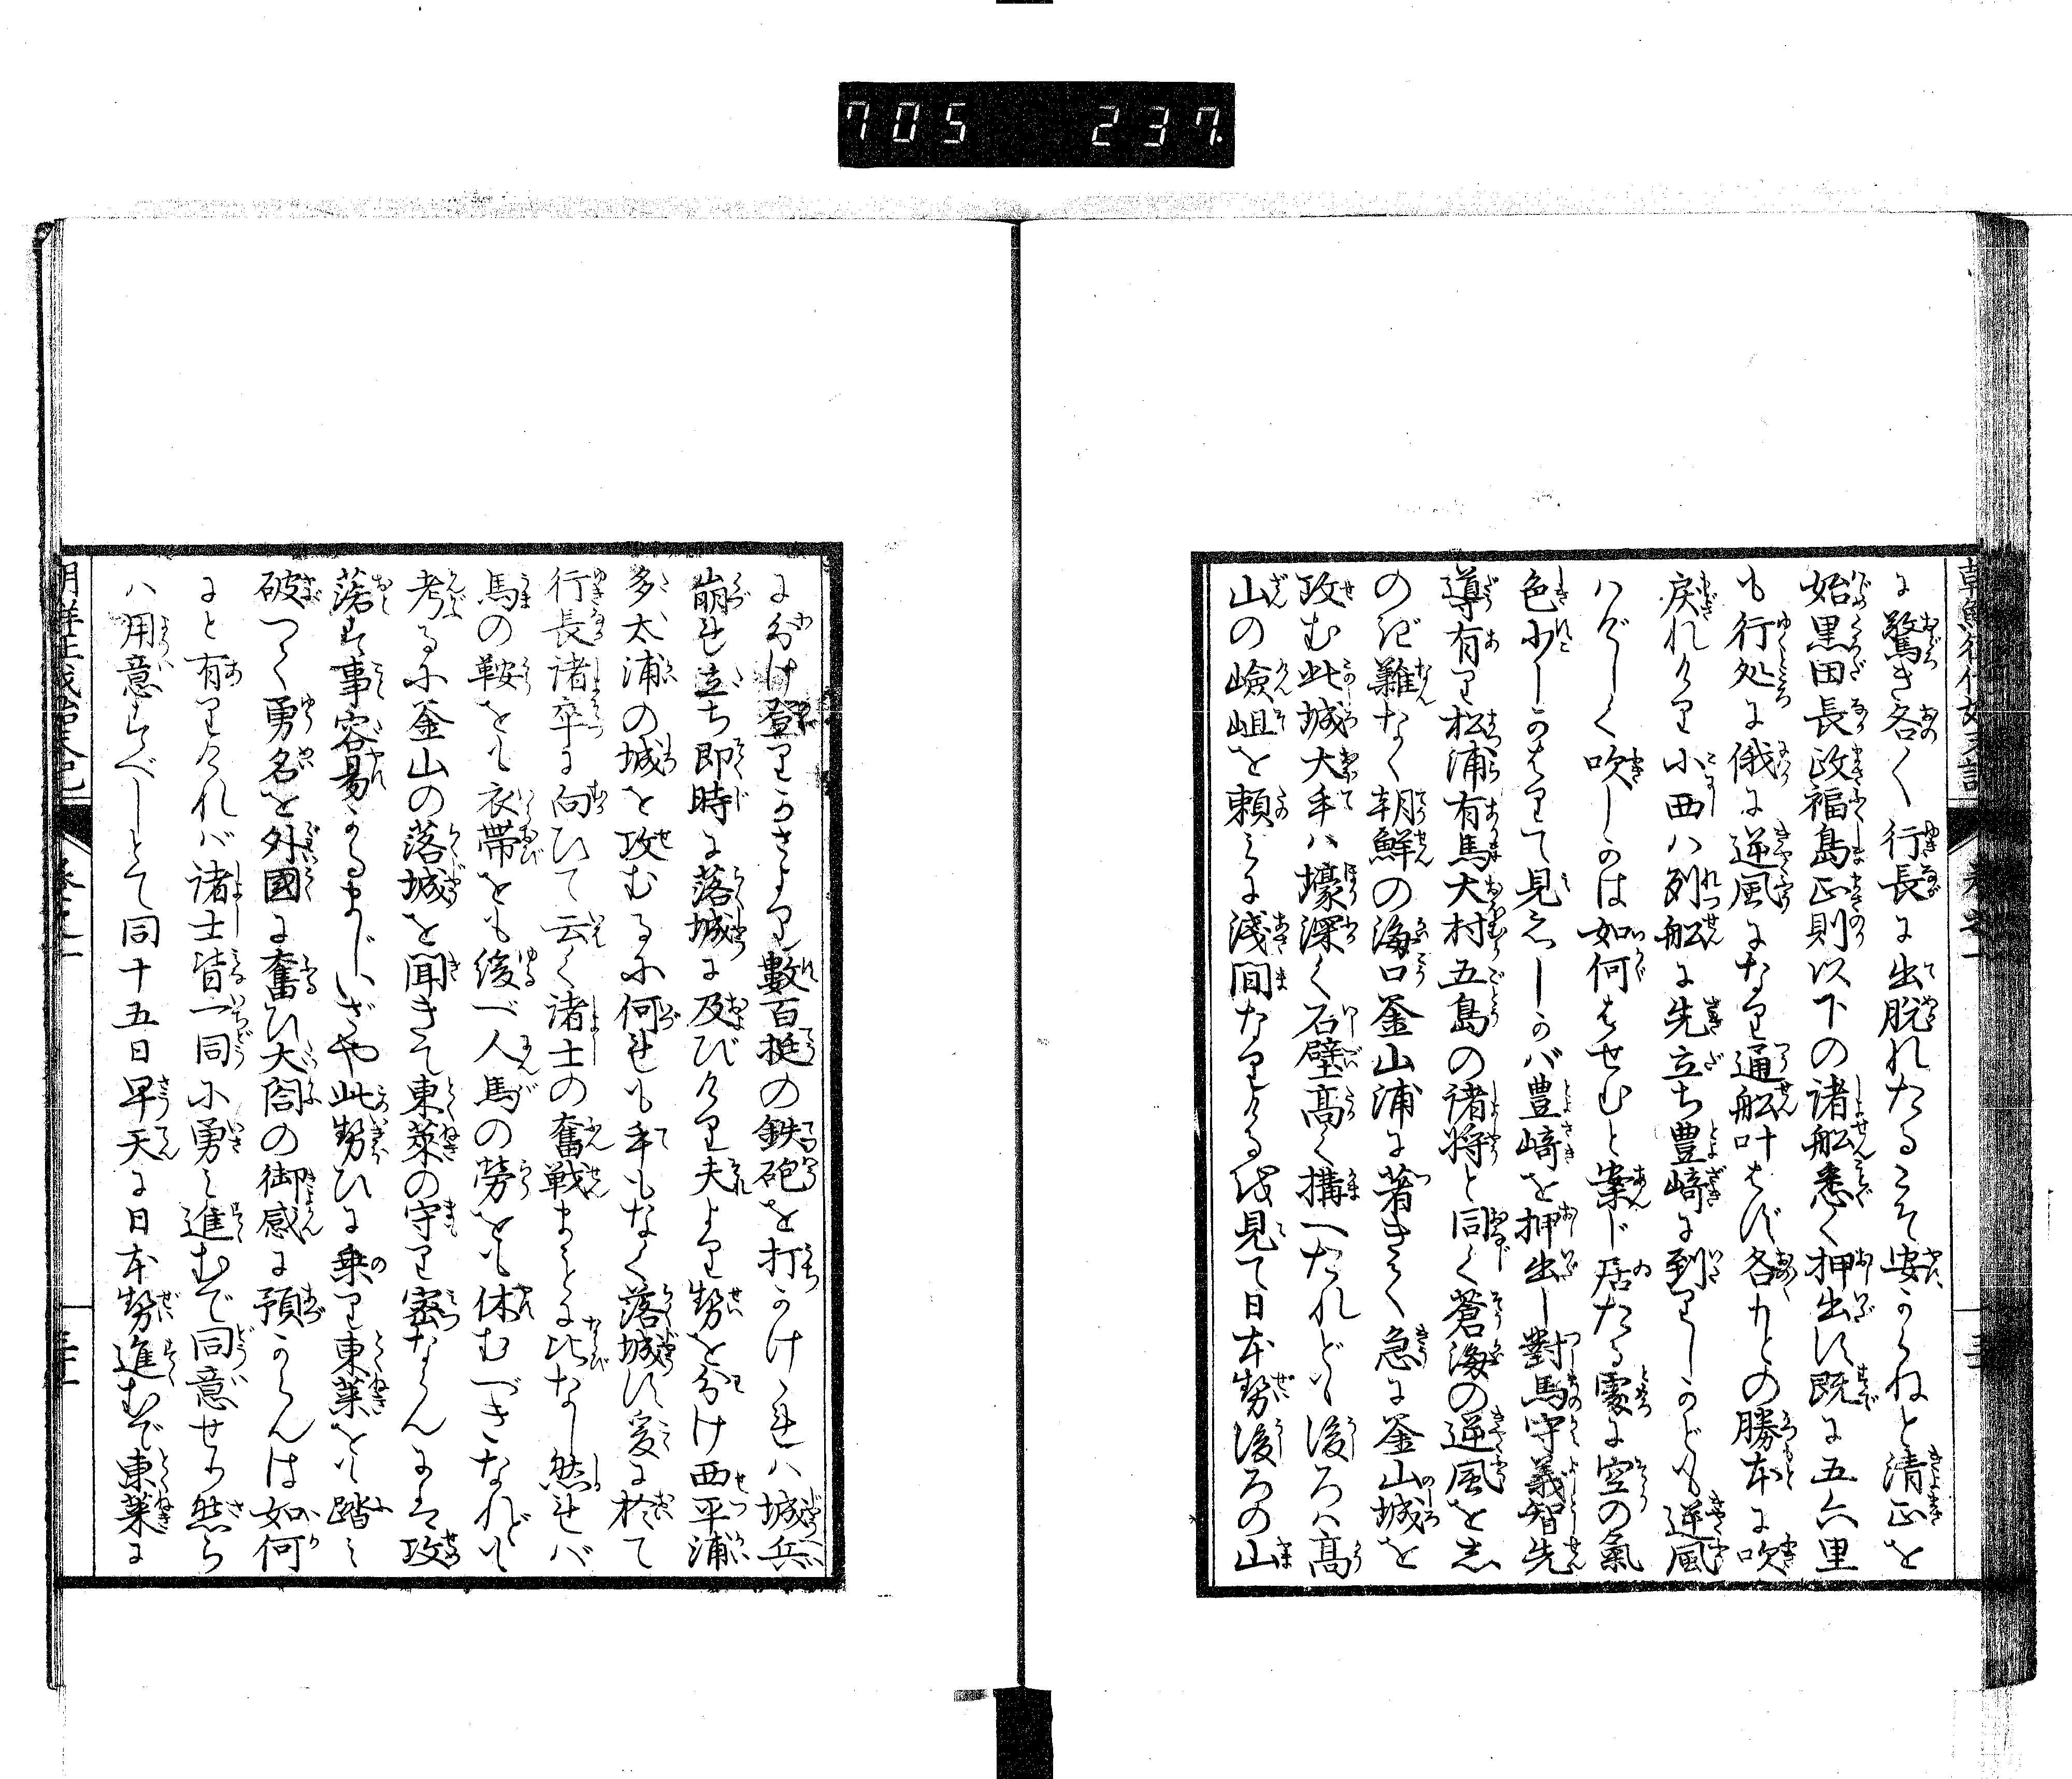 705 237
に驚き各〱行長に出脱れたるこそ安からねと清正を
始黒田長政福島正則以下の諸船悉く押出す既に五六里
も行処に俄に逆風になり通船叶はず各々もとの勝本に吹
戻れけり小西ハ列船に先立ち豊﨑に到りしかども逆風
ハげしく吹しかは如何はせむと案じ居たる處に空の氣
色少しかはりて見えしかバ豊﨑を押出し對馬守義智先
導有り松浦有馬大村五島の諸将と同く蒼海の逆風を志
のぎ難なく朝鮮の海口釜山浦に著きて急に釜山城を
攻む此城大手ハ壕深く石壁高く構へたれども後ろハ高
山の嶮岨を頼みに淺間なりける伐見て日本勢後ろの山
に分け登りかさより數百挺の鉄砲を打かけゝれハ城兵
崩れ立ち即時に落城に及びけり夫より勢を分け西平浦
多太浦の城を攻むるに何れも手もなく落城す爰に於て
行長諸卒に向ひて云く諸士の奮戦まことに比なし然れバ
馬の鞍をも衣帯をも緩べ人馬の労をも休むべきなれども
考るに釜山の落城を聞きて東莱の守り密ならんにハ攻
落す事容易かるまじいざや此勢ひに乗り東莱をも踏ミ
破つて勇名を外國に奮ひ大閤の御感に預からんは如何
にと有りけれバ諸士皆一同に勇ミ進むで同意せり然ら
ハ用意すべしとて同十五日早天に日本勢進むで東莱に